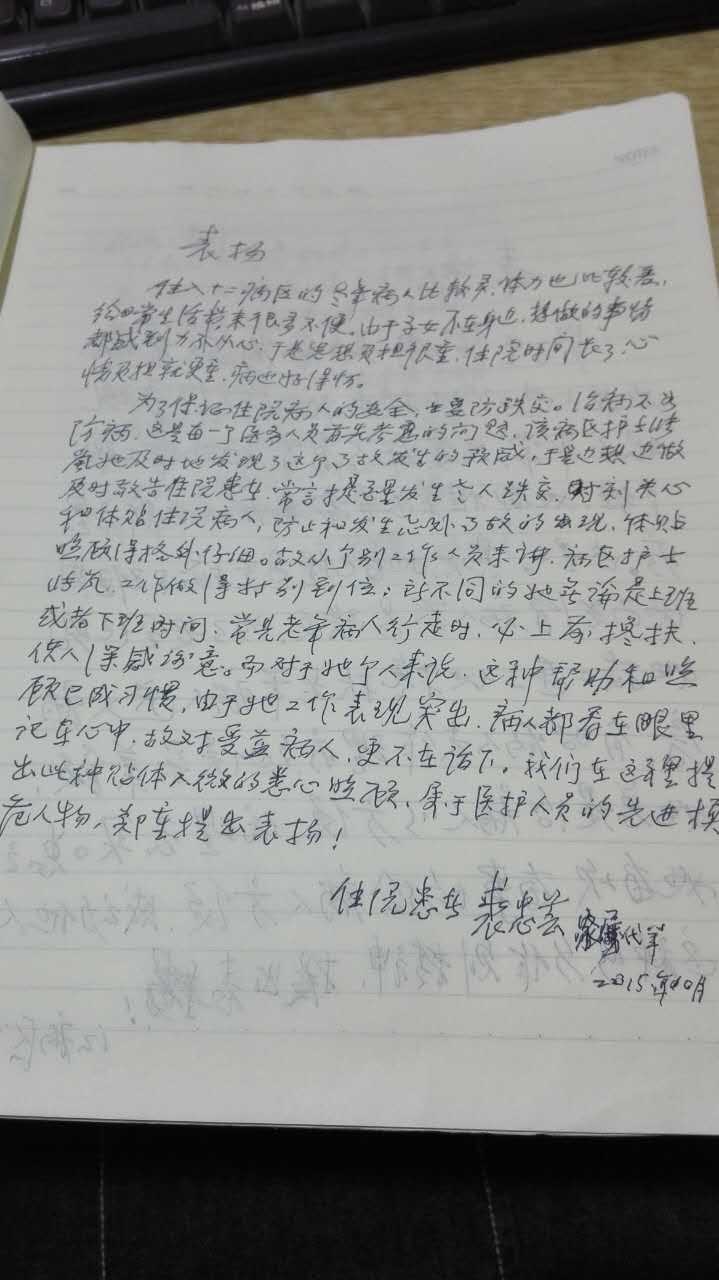 表扬
住入十二病区的老年病人比较多,体力也比较差,
给日常生活带来很多不便。由于子女不在身边,想做的事情
都感到力不从心,于是思想负担很重,住院时间长了,心
情负担就更重,病也好得慢。
为了保证住院病人的安全,主要防跌交。治病不如
防病,这是每一个医务人员首先考虑的问题,该病区护士
她及时地发现了这个事故发生的预感,于是边想边做
及时敬告住院患者,常言提是发生老人跌交,时刻关心
和体贴住院病人,防止和发生意外事故的出现,体贴
照顾得格外仔细。故从个别工作人员来讲,病区护士
工作做得特别到位;所不同的她无论是上班
或者下班时间,常见老年病人行走时,必上前搀扶,
使人深感谢意。而对于她个人来说,这种帮助和照
顾已成习惯,由于她工作表现突出,病人都看在眼里
记在心中,故对受益病人,更不在话下。我们在这里提
出此种贴体入微的悉心照顾,属于医护人员的先进模
范人物,郑重提出表扬!
住院患者 裘忠芸 家属代笔
2015年10月